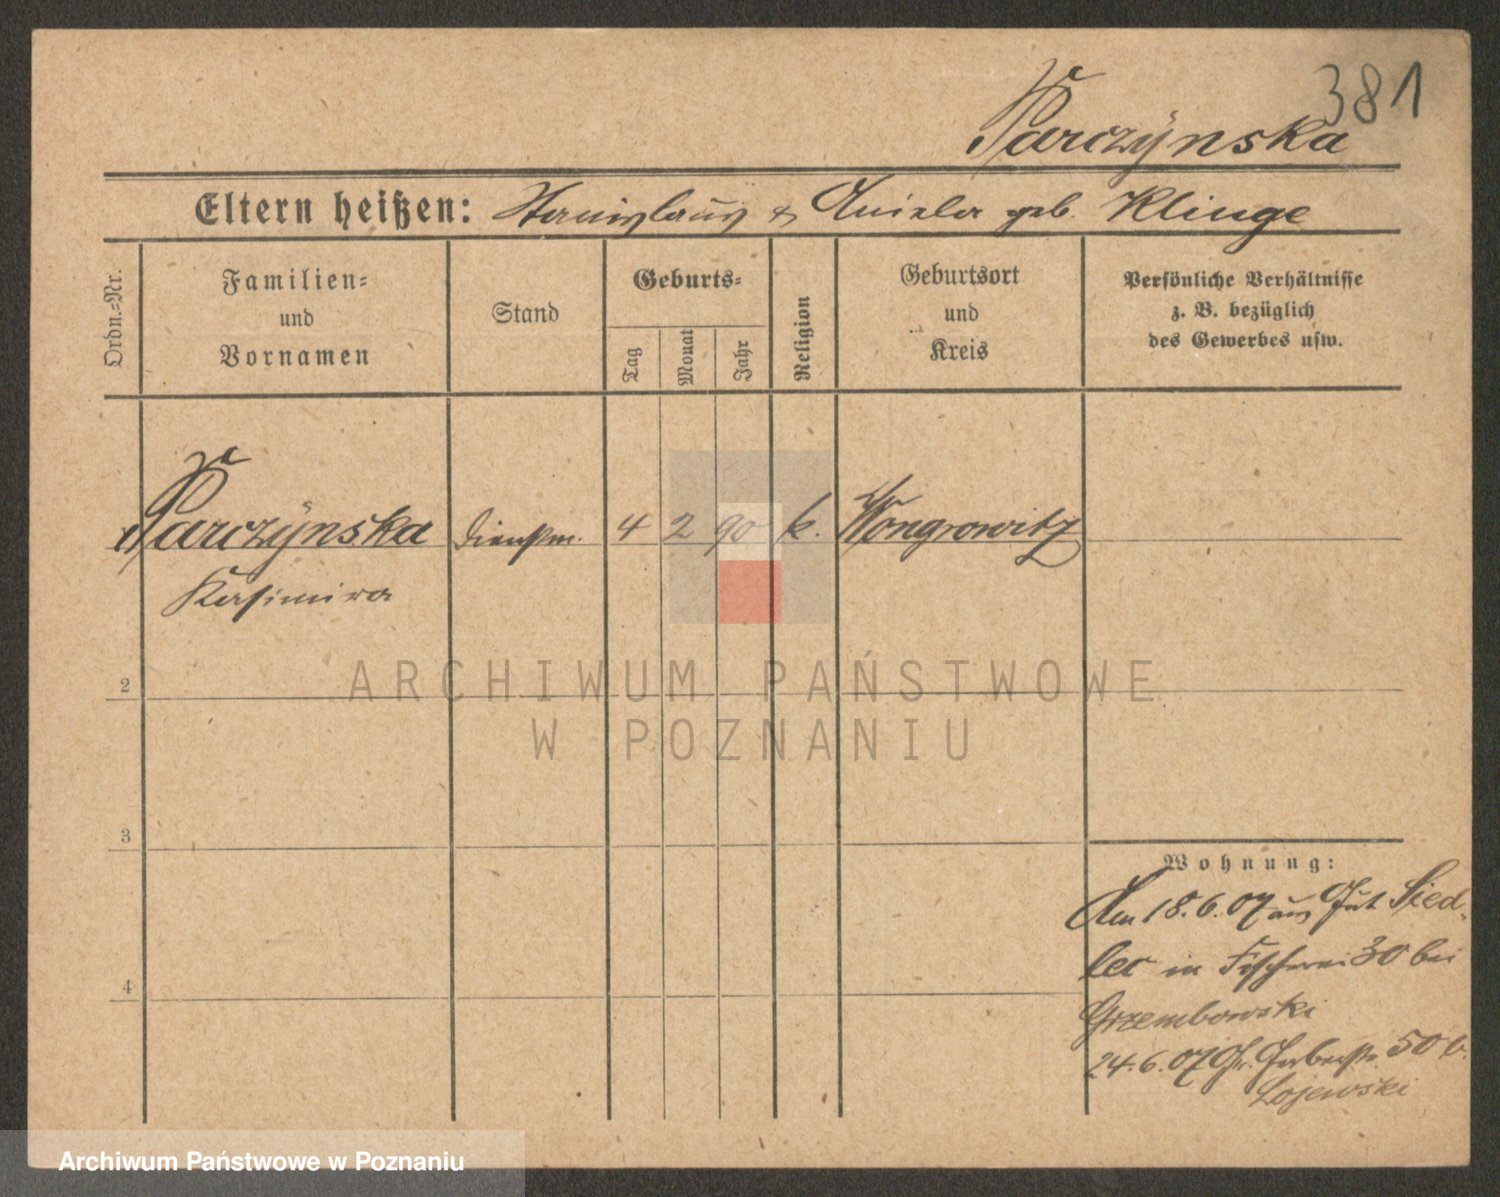 381
Parczÿnska
Eltern heißen: Stanislaus & Aniela geb. Klinge
Ordn.=Nr.
Familien=
und
Vornamen
Stand
Geburts=
Tag
Monat
Jahr
Religion
Geburtsort
und
Kreis
Persönliche Verhältnisse
z. B. bezüglich
des Gewerbes usw.
Parczÿnska Dienstm. 4 2 90 k. Wongrowitz
Kasimira
2
3
4
Wohnung:
Am 18.6.07 aus Gut Sied-
lec in Fischerei 30 bei
Grzembowski
24.6.07 Gr. Gerberstr. 50 b.
Lojewski
ARCHIWUM PAŃSTWOWE
W POZNANIU
Archiwum Państwowe w Poznaniu